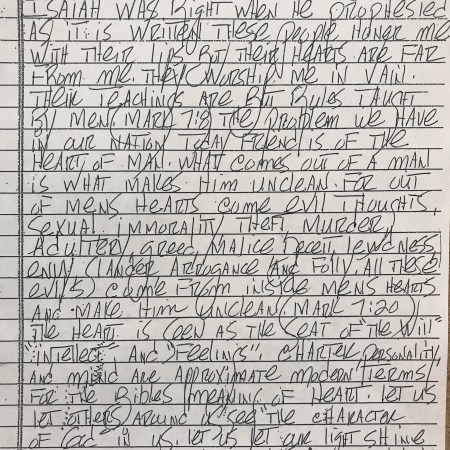 ISAIAH WAS RIGHT WHEN HE PROPHESIED
AS IT IS WRITTEN THESE PEOPLE HONER ME
WITH THEIR LIPS BUT THEIR HEARTS ARE FAR
FROM ME. THEY WORSHIP ME IN VAIN.
THEIR TEACHINGS ARE BUT RULES TAUGHT
BY MEN. MARK 7:8 THE PROBLEM WE HAVE
IN OUR NATION TODAY FRIEND IS OF THE
HEART OF MAN. WHAT COMES OUT OF A MAN
IS WHAT MAKES HIM UNCLEAN. FOR OUT
OF MENS HEARTS COME EVIL THOUGHTS,
SEXUAL IMMORALITY, THEFT, MURDER,
ADULTERY, GREED, MALICE, DECEIT, LEWDNESS,
ENVY, SLANDER ARROGANCE AND FOLLY. ALL THESE
EVILS COME FROM INSIDE MENS HEARTS
AND MAKE HIM UNCLEAN. (MARK 7:20)
THE HEART IS SEEN AS THE SEAT OF "THE WILL"
"INTELLECT", AND "FEELINGS", CHARTER, PERSONALITY,
AND MIND ARE APPROXIMATE MODERN TERMS
FOR THE BIBLES MEANING OF HEART. LET US
LET OTHERS AROUND US SEE "THE CHARACTER
OF GOD" IN US. LET US LET OUR LIGHT SHINE